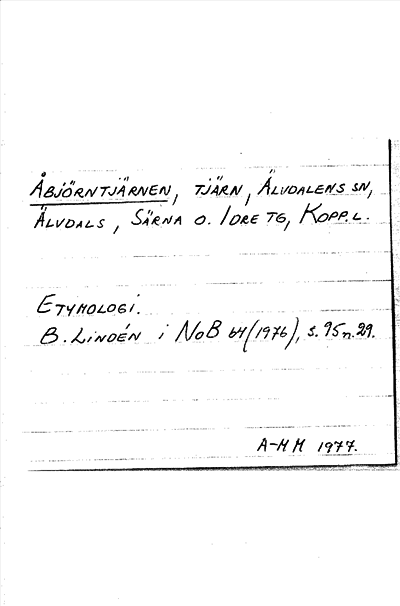 Åbjörntjärnen, tjärn, Älvdalens sn,
Älvdals, Särna o. Idre tg, Kopp.l.
Etymologi.
B. Lindén i NoB 64(1976), s. 95 n. 29.
A-M M 1977.